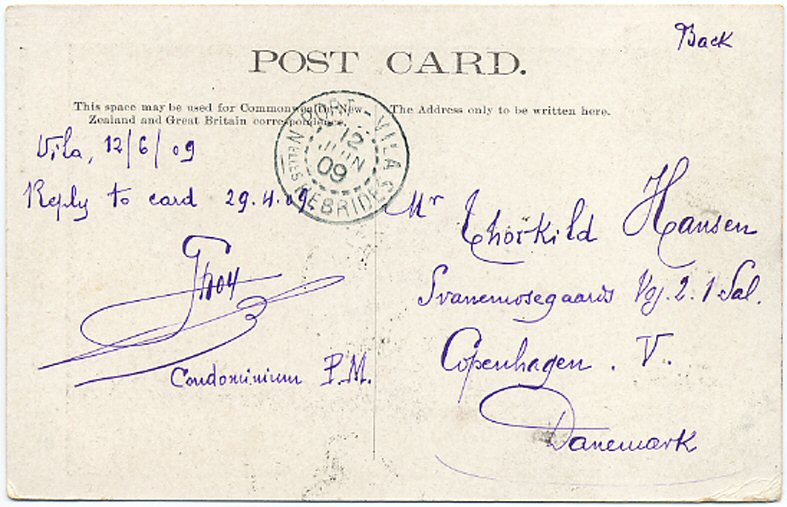 Back
POST CARD.
This space may be used for Commonwealth, New
Zealand and Great Britain correspondence.
The Address only to be written here.
PORT-VILA
12
JUN
09
NEBRIDES
Vila, 12/6/09
Reply to card 29.4.09
Condominium P.M.
Mr Thorkild Hansen
Svanemosegaards Vej. 2. 1 Sal.
Copenhagen. V.
Danemark